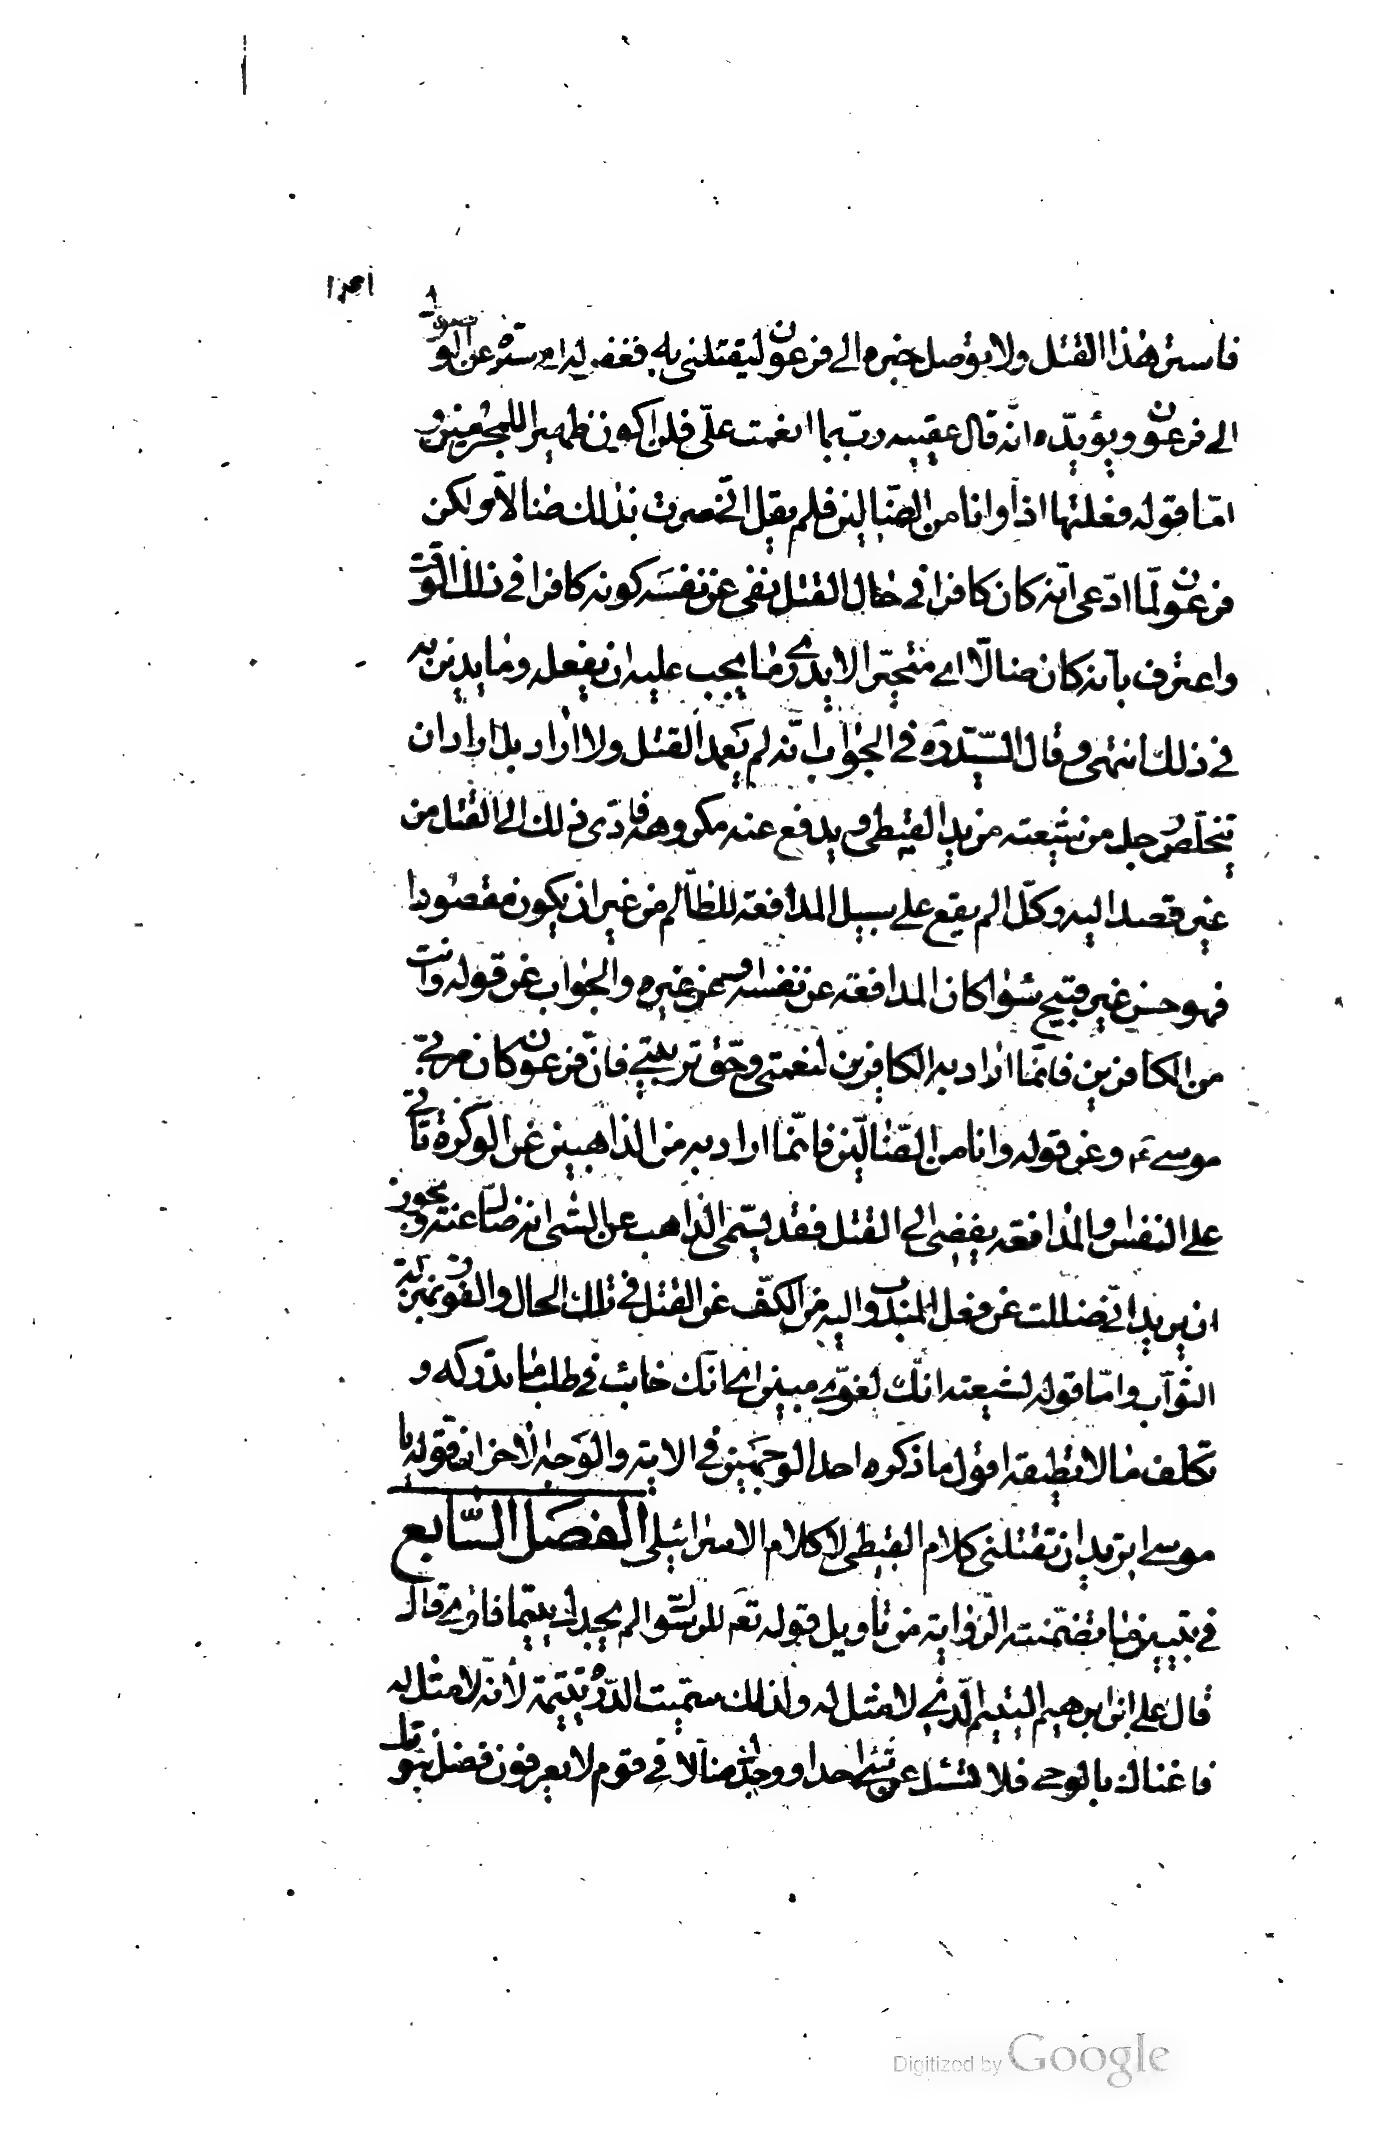 فاستر هذا القتل ولا يوصل خبره الى فرعون ليقتلنى به فغفر له اى ستره عن الوصول
الى فرعون ويؤيّده انّه قال عقيبه ربّ بما انعمت علىّ فلن اكون ظهيرا للمجرمين و
امّا قوله فعلتها اذا وانا من الضّالين فلم يقل انّى صرت بذلك ضالا ولكن
فرعون لمّا ادّعى انّه كان كافرا فى حال القتل نفى عن نفسه كونه كافرا فى ذلك الوقت
واعترف بانّه كان ضالّا اى متحيّرا لا يدرى ما يجب عليه ان يفعله وما يدين به
فى ذلك انتهى وقال السيّد ره فى الجواب انّه لم يعمد القتل ولا اراد بل اراد ان
يتخلّص رجل من شيعته من يد القبطى ويدفع عنه مكروهه فادّى ذلك الى القتل من
غير قصد اليه وكلّ الم يقع على سبيل المدافعة للظّالم من غير ان يكون مقصودا
فهو حسن غير قبيح سواء كان المدافعة عن نفسه وعن غيره والجواب عن قوله وانت
من الكافرين فانّما اراد به الكافرين لنعمتى وحقّ تربيتى فانّ فرعون كان مربّى
موسى ع وعن قوله وانا من الضّالّين فانّما اراد به من الذاهبين عن الوكزة تأتى
على النفس والمدافعة يفضى الى القتل فقد يسمّى الذاهب عن الشى انه ضالّ عنه ويجوز
ان يريد انّى ضللت عن فعل المندوب اليه من الكفّ عن القتل فى تلك الحال والفوز بمنزلة
الثواب وامّا قوله لشيعته انّك لغوىّ مبين اى انّك خائب فى طلب ما تدركه و
تكلف ما لا تطيقه اقول ما ذكره احد الوجهين فى الاية والوجه الاخر ان قوله يا
موسى اتريد ان تقتلنى كلام القبطى لا كلام الاسرائيلى الفصل السّابع
فى تبيين ما تضمّنته الرّواية من تاويل قوله تع للرسول الم يجدك يتيما فاوى قال
قال على ابن برهيم اليتيم الّذى لا مثل له ولذلك سمّيت الدّرّة يتيمة لانّه لا مثل لها
فاغناك بالوحى فلا تسئل عن شئ احدا ووجدك ضالا فى قوم لا يعرفون فضل نبوتك
Digitized by Google